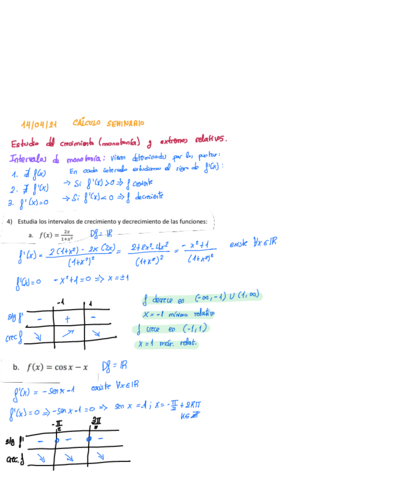 14/04/21 CÁLCULO SEMINARIO
Estudio del crecimiento (monotonía) y extremos relativos.
Intervalos de monotonía: vienen determinados por los puntos:
1. ∄ f(x)
En cada intervalo estudiamos el signo de f'(x):
2. ∄ f'(x) → Si f'(x) > 0 ⇒ f creciente
3. f'(x) = 0 → Si f'(x) < 0 ⇒ f decreciente
4) Estudia los intervalos de crecimiento y decrecimiento de las funciones:
a. f(x) = 2x/(1+x²) Df = ℝ
f'(x) = (2(1+x²) - 2x(2x))/(1+x²)² = (2+2x²-4x²)/(1+x²)² = (-x²+1)/(1+x²)² existe ∀x∈ℝ
f'(x)=0 -x²+1=0 ⇒ x=±1
-1 1
sig f' - + -
crec f ↘ ↗ ↘
f decrece en (-∞,-1) ∪ (1,∞)
x=-1 mínimo relativo
f crece en (-1,1)
x=1 máx. relat.
b. f(x) = cos x − x Df = ℝ
f'(x) = -sen x -1 existe ∀x∈ℝ
f'(x)=0 ⇒ -sen x -1=0 ⇒ sen x = -1; x = -π/2 + 2kπ
k∈ℤ
-π/2 3π/2
sig f' - - -
crec. f ↘ ↘ ↘